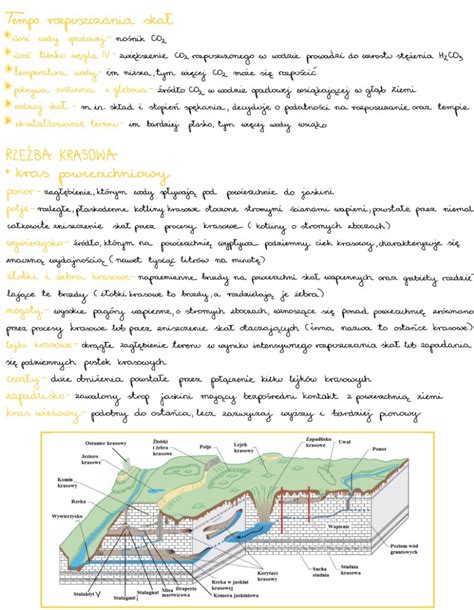 Tempo rozpuszczania skał
ilość wody opadowej - nośnik CO2
ilość tlenku węgla IV - zwiększenie CO2 rozpuszczonego w wodzie prowadzi do wzrostu stężenia H2CO3
temperatura wody - im niższa, tym więcej CO2 może się rozpuścić
pokrywa roślinna i glebowa - źródło CO2 w wodzie opadowej wsiąkającej w głąb Ziemi
rodzaj skał - m.in. skład i stopień spękania, decyduje o podatności na rozpuszczanie oraz tempie
ukształtowanie terenu - im bardziej płasko, tym więcej wody wsiąka
RZEŹBA KRASOWA
• kras powierzchniowy
ponor - zagłębienie, którym wody spływają pod powierzchnię do jaskini
polje - rozległe, płaskodenne kotliny krasowe otoczone stromymi ścianami wapieni, powstałe przez niemal
całkowite zniszczenie skał przez procesy krasowe (kotliny o stromych zboczach)
wywierzysko - źródło, którym na powierzchnię wypływa podziemny ciek krasowy, charakteryzuje się
znaczną wydajnością (nawet tysiąc litrów na minutę)
żłobki i żebra krasowe - naprzemienne bruzdy na powierzchni skał wapiennych oraz grzbiety rozdzie-
lające te bruzdy (żłobki krasowe to bruzdy, a rozdzielają je żebra)
mogoty - wysokie pagóry wapienne, o stromych zboczach, wznoszące się ponad powierzchnię zrównaną
przez procesy krasowe lub przez zniszczenie skał otaczających (inna nazwa to ostańce krasowe)
lejki krasowe - okrągłe zagłębienie terenu w wyniku intensywnego rozpuszczania skał lub zapadania
się podziemnych pustek krasowych
uwały - duże obniżenia powstałe przez połączenie kilku lejków krasowych
zapadlisko - zawalony strop jaskini mający bezpośredni kontakt z powierzchnią ziemi
kras wieżowy - podobny do ostańca, lecz zazwyczaj wyższy i bardziej pionowy
Ostaniec krasowy
Żłobki i żebra krasowe
Polje
Lejek krasowy
Zapadlisko krasowe
Uwał
Ponor
Jezioro krasowe
Komin krasowy
Rzeka
Wywierzysko
Wapienie
Poziom wód gruntowych
Sucha studnia
Studnia
Korytarz krasowy
Rzeka w jaskini krasowej
Komora jaskiniowa
Draperia
Misa martwicowa
Stalagnat
Stalagmit
Stalaktyt